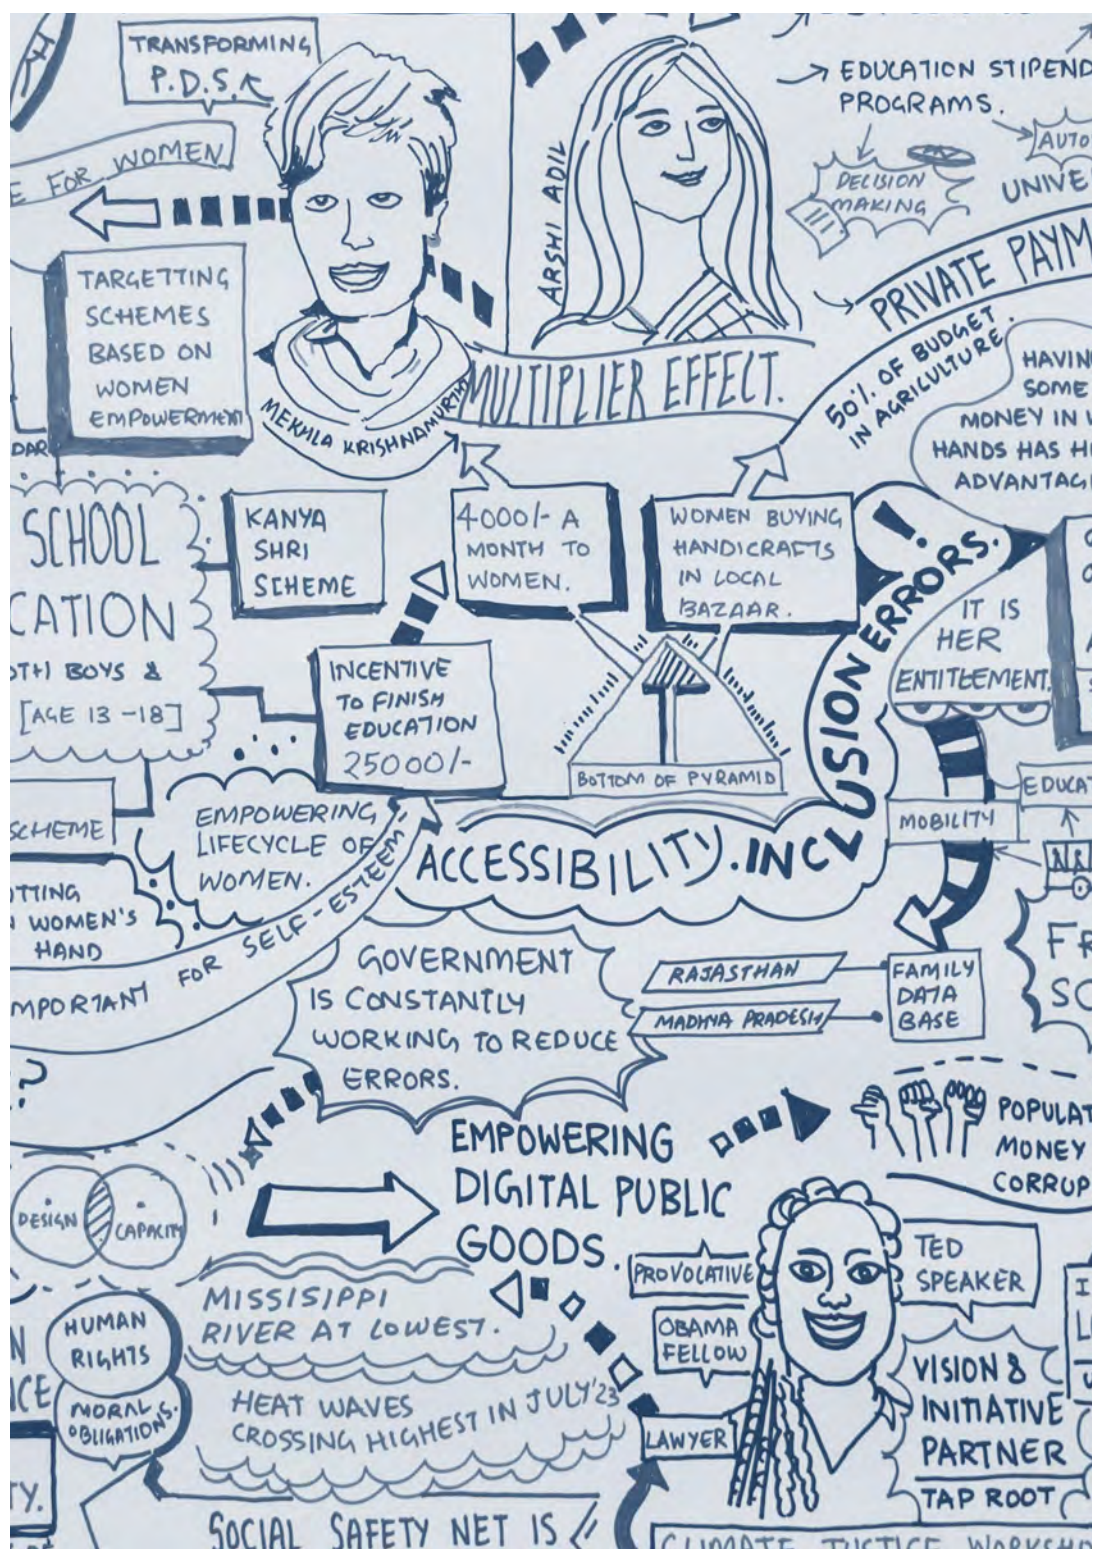 TRANSFORMING
P.D.S.
FOR WOMEN
TARGETTING
SCHEMES
BASED ON
WOMEN
EMPOWERMENT
MEKHLA KRISHNAMURTHY
ARSHI ADIL
MULTIPLIER EFFECT.
EDUCATION STIPEND
PROGRAMS.
DECISION
MAKING
AUTO
UNIVE
PRIVATE PAYM
50% OF BUDGET
IN AGRICULTURE.
HAVIN
SOME
MONEY IN
HANDS HAS
ADVANTAG
DAR
SCHOOL
CATION
BOYS &
[AGE 13 -18]
KANYA
SHRI
SCHEME
4000/- A
MONTH TO
WOMEN.
WOMEN BUYING
HANDICRAFTS
IN LOCAL
BAZAAR.
INCENTIVE
TO FINISH
EDUCATION
25000/-
BOTTOM OF PYRAMID
IT IS
HER
ENTITLEMENT.
SCHEME
EMPOWERING
LIFECYCLE OF
WOMEN.
ACCESSIBILITY. INCLUSION ERRORS.
!
MOBILITY
EDUCAT
TTING
WOMEN'S
HAND
MPORTANT FOR SELF-ESTEEM
GOVERNMENT
IS CONSTANTLY
WORKING TO REDUCE
ERRORS.
RAJASTHAN
MADHYA PRADESH
FAMILY
DATA
BASE
FR
SC
?
EMPOWERING
DIGITAL PUBLIC
GOODS.
POPULAT
MONEY
CORRUP
DESIGN
CAPACITY
MISSISIPPI
RIVER AT LOWEST.
HUMAN
RIGHTS
MORAL
OBLIGATIONS.
HEAT WAVES
CROSSING HIGHEST IN JULY'23
PROVOCATIVE
OBAMA
FELLOW
LAWYER
TED
SPEAKER
VISION &
INITIATIVE
PARTNER
TAP ROOT
TY.
SOCIAL SAFETY NET IS
CLIMATE JUSTICE WORKSHO